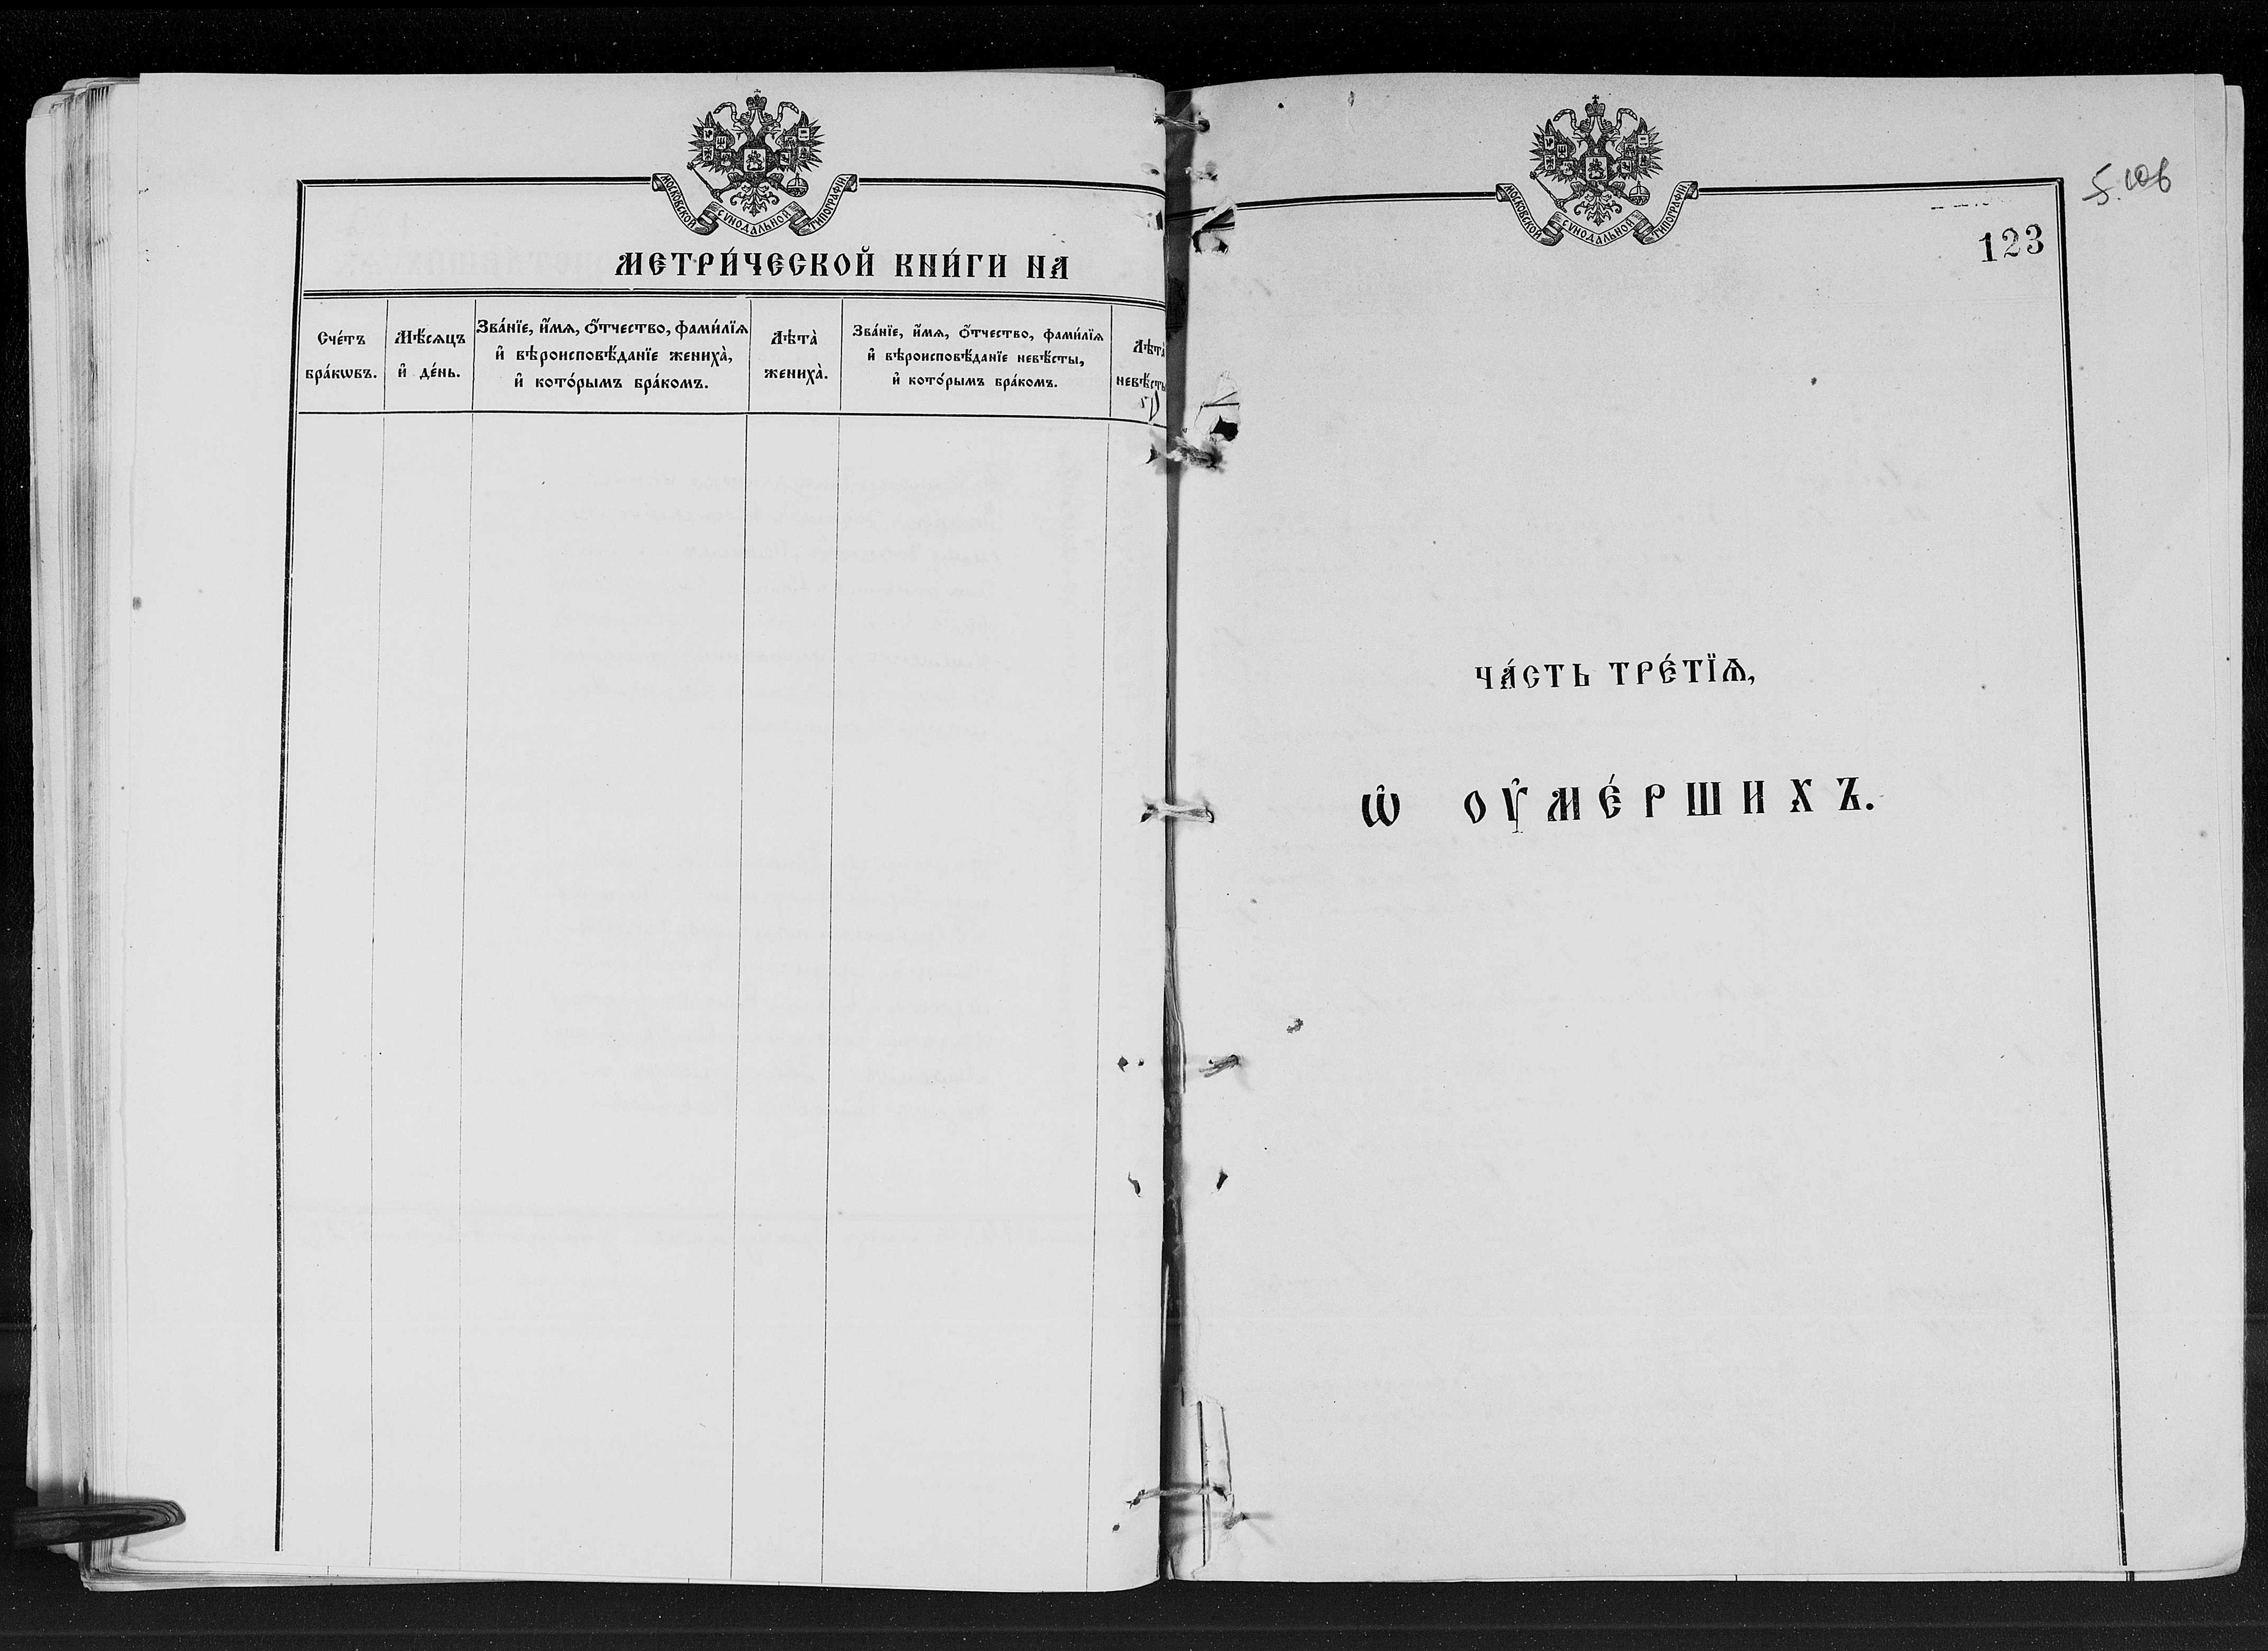 МОСКОВСКОЙ СѴНОДАЛЬНОЙ ТИПОГРАФІИ.
МЕТРИ́ЧЕСКОЙ КНИ́ГИ НА
Сче́тъ бра́кѡвъ.
Мѣ́сѧцъ и҆ де́нь.
Зва́нїе, и҆́мѧ, ѻ҆́тчество, фами́лїѧ
и҆ вѣроисповѣ́данїе жениха̀,
и҆ кото́рымъ бра́комъ.
Лѣта̀ жениха̀.
Зва́нїе, и҆́мѧ, ѻ҆́тчество, фами́лїѧ
и҆ вѣроисповѣ́данїе невѣ́сты,
и҆ кото́рымъ бра́комъ.
Лѣта̀
невѣ́сты
МОСКОВСКОЙ СѴНОДАЛЬНОЙ ТИПОГРАФІИ.
123
ЧА́СТЬ ТРЕ́ТЇѦ,
Ѡ҆ ОУ҆МЕ́РШИХЪ.